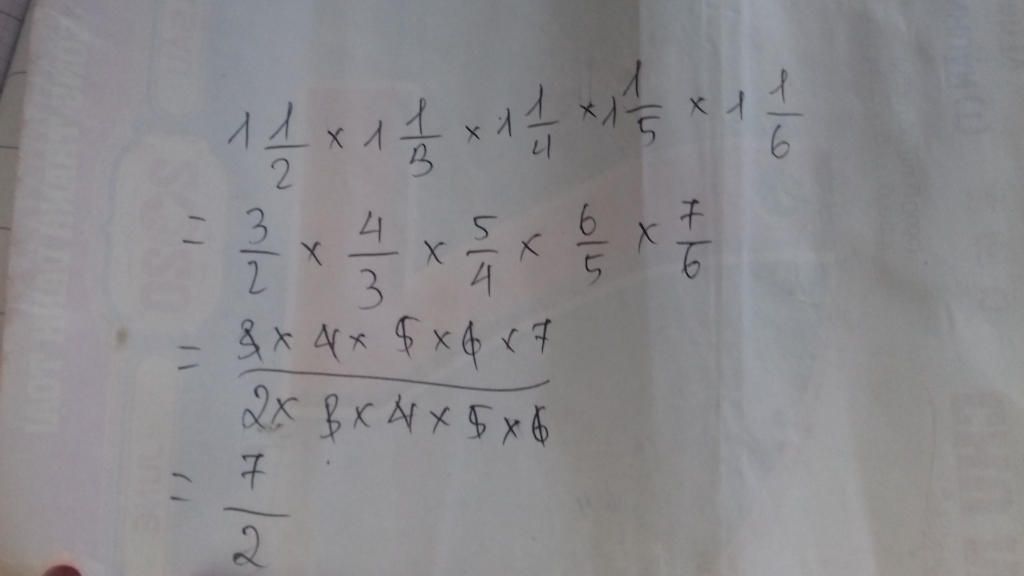 1 1/2 × 1 1/3 × 1 1/4 × 1 1/5 × 1 1/6
= 3/2 × 4/3 × 5/4 × 6/5 × 7/6
= (3 × 4 × 5 × 6 × 7)/(2 × 3 × 4 × 5 × 6)
= 7/2